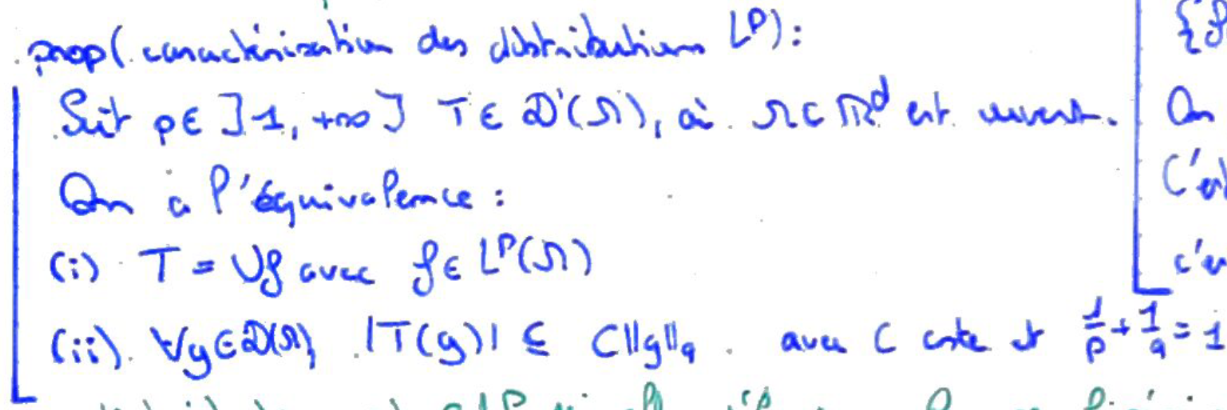 prop(caractérisation des distributions L^p):
Soit p∈ ]1, +∞] T∈ D'(Ω), où Ω⊂ℝ^d est ouvert.
On a l'équivalence :
(i) T = Uf avec f∈ L^p(Ω)
(ii) ∀g∈D(Ω), |T(g)| ≤ C||g||_q avec C cste et 1/p + 1/q = 1
On